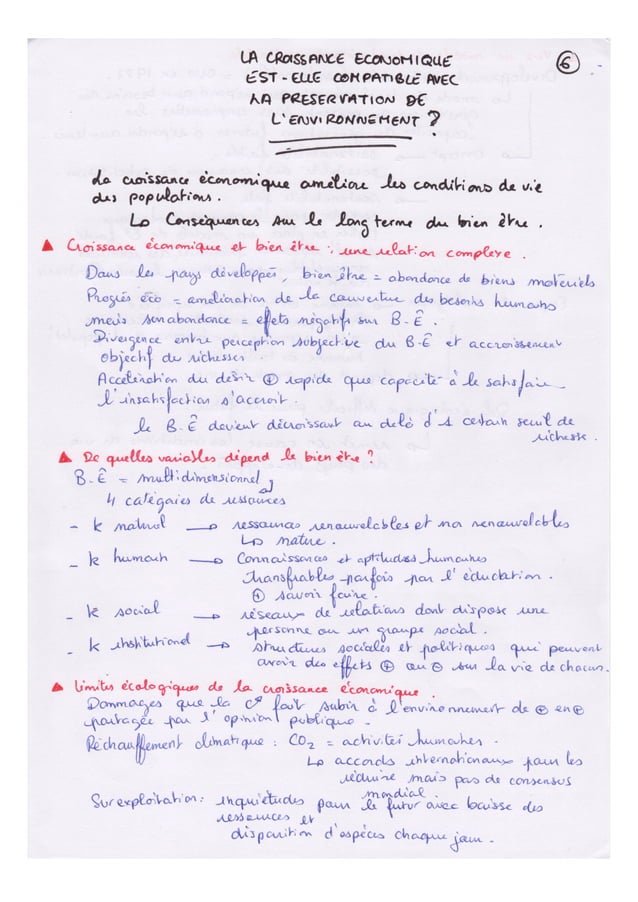 LA CROISSANCE ECONOMIQUE
6
EST-ELLE COMPATIBLE AVEC
LA PRESERVATION DE
L'ENVIRONNEMENT ?
La croissance économique améliore les conditions de vie
des populations.
Ls Conséquences sur le long terme du bien être.
▲ Croissance économique et bien être : une relation complexe.
Dans les pays développés, bien être = abondance de biens matériels
Progrès éco = amélioration de la couverture des besoins humains
mais son abondance = effets négatifs sur B-Ê.
Divergence entre perception subjective du B-Ê et accroissement
objectif du richesses.
Accélération du désir ⊕ rapide que capacité à le satisfaire
l'insatisfaction s'accroit.
le B.Ê devient décroissant au delà d'1 certain seuil de
richesse.
▲ De quelles variables dépend le bien être ?
B.Ê = multidimensionnel
4 catégories de ressources
- k naturel → ressources renouvelables et non renouvelables
Ls nature.
- k humain → Connaissances et aptitudes humaines
transférables parfois par l'éducation.
⊕ savoir faire.
- k social → réseaux de relations dont dispose une
personne ou un groupe social.
- k institutionel → structures sociales et politiques qui peuvent
avoir des effets ⊕ ou ⊖ sur la vie de chacun.
▲ Limites écologiques de la croissance économique.
Dommages que la C° fait subir à l'environnement de ⊕ en ⊕
partagée par l'opinion publique.
Réchauffement climatique : CO2 = activités humaines.
Ls accords internationaux pour les
réduire mais pas de consensus
mondial.
Surexploitation : inquiétudes pour le futur avec baisse des
ressources et
disparition d'espèces chaque jour.